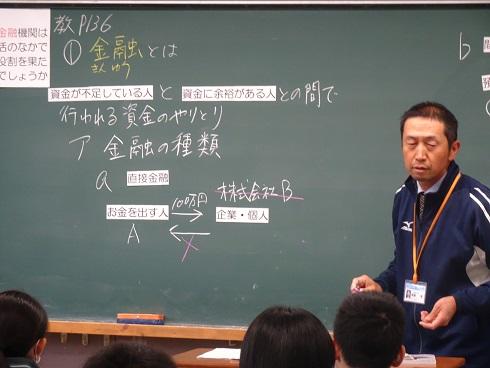 金融機関は
活のなかで
役割を果た
でしょうか
教P136
① 金融とは
きんゆう
資金が不足している人と資金に余裕がある人との間で
行われる資金のやりとり
ア 金融の種類
a 直接金融
100万円
株式会社B
お金を出す人
企業・個人
A
X
b